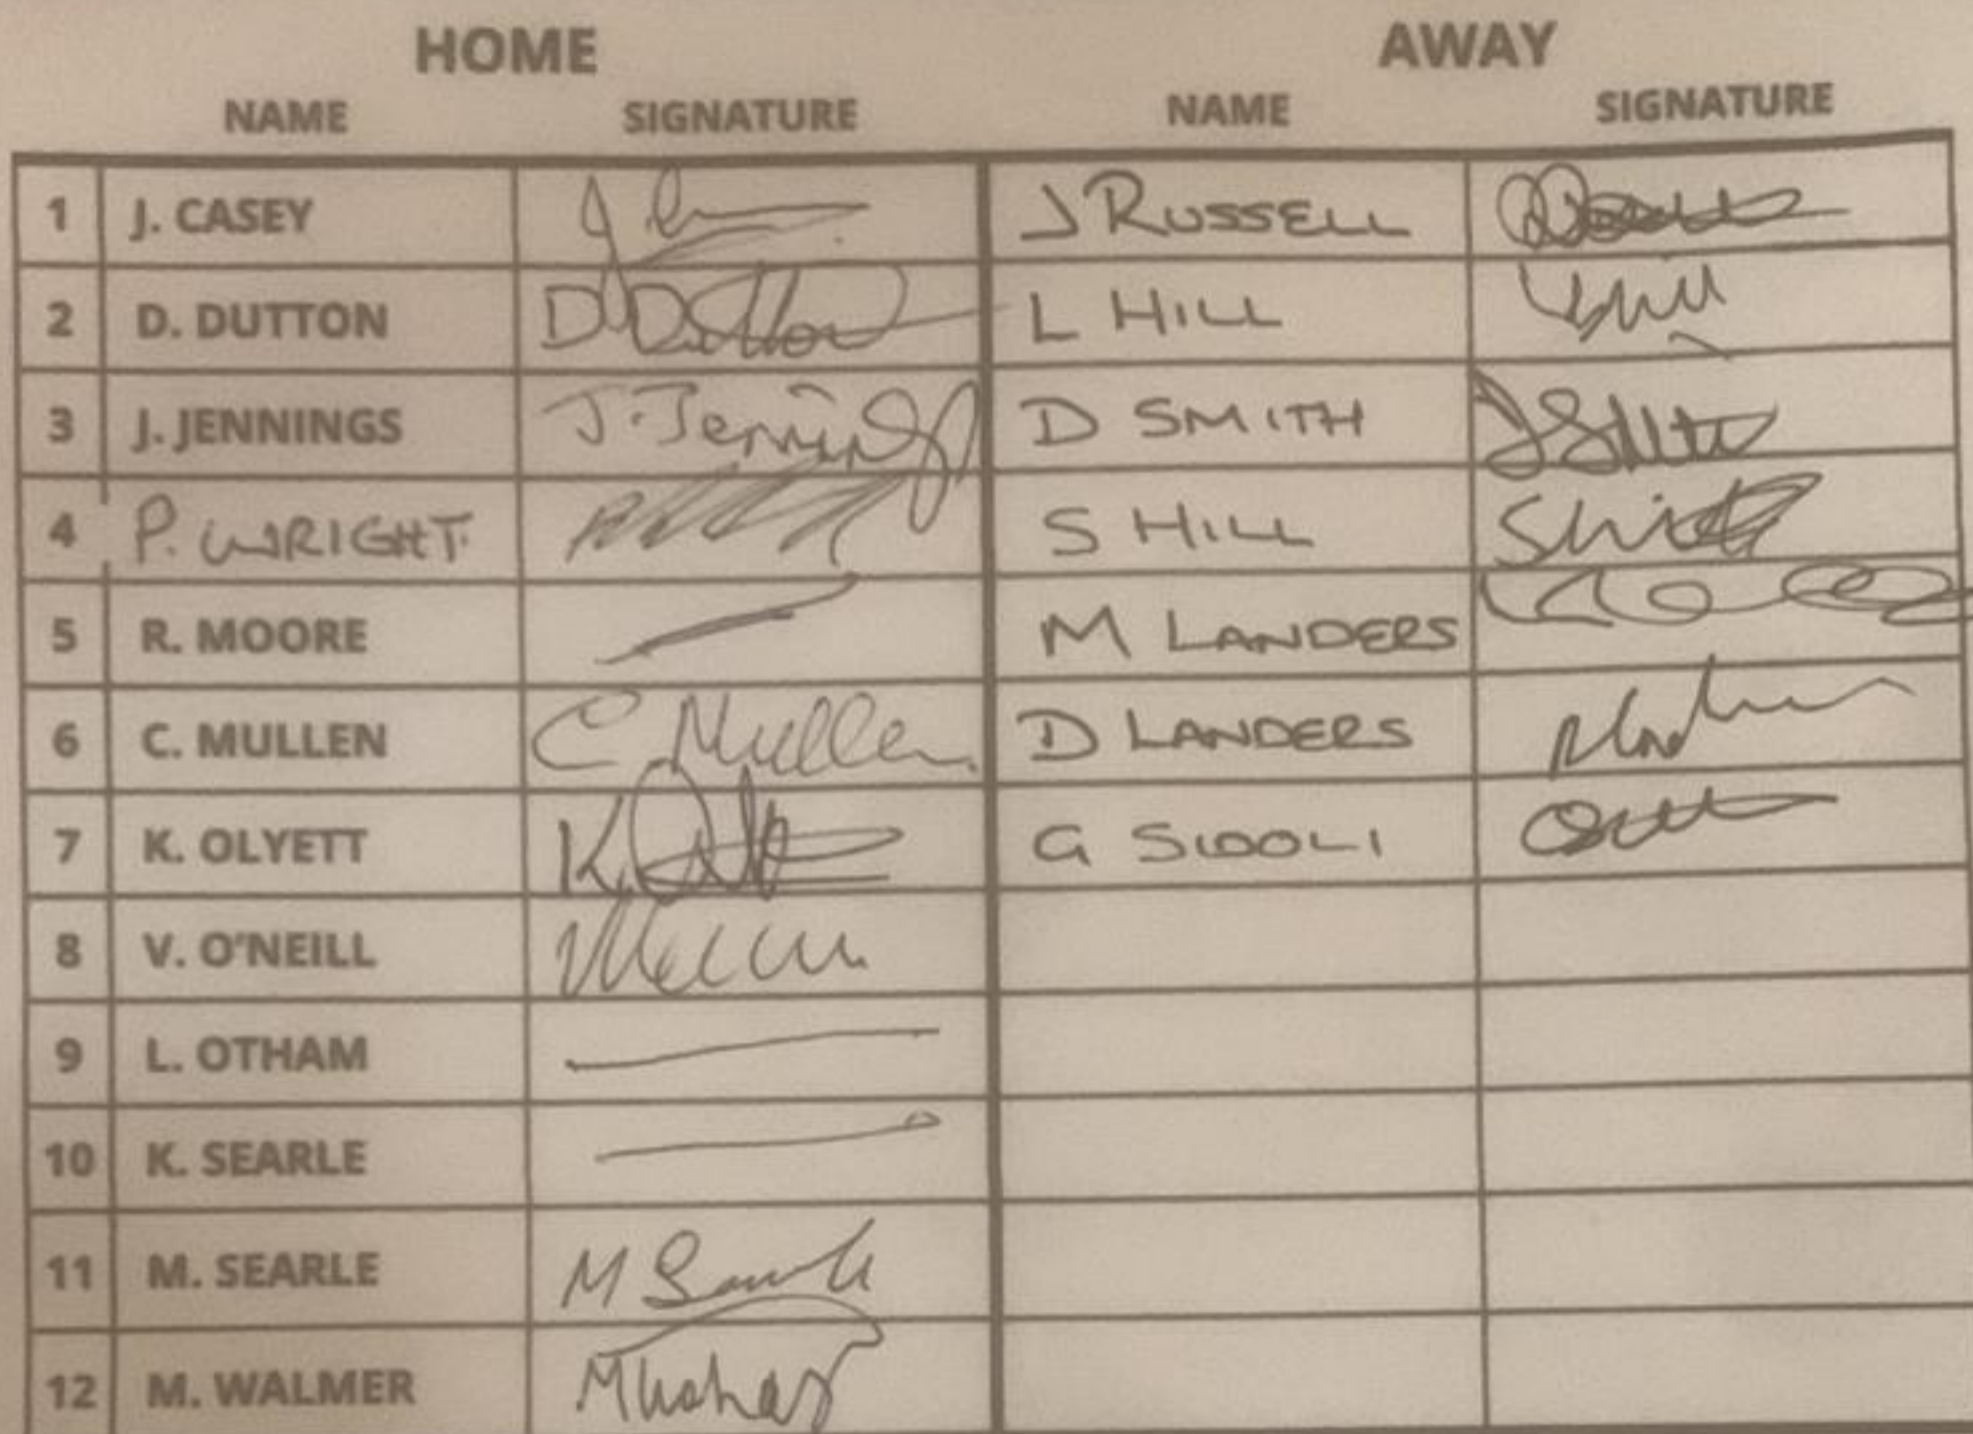 HOME AWAY
NAME SIGNATURE NAME SIGNATURE
1 J. CASEY J RUSSELL
2 D. DUTTON D Dutton L HILL
3 J. JENNINGS J. Jennings D SMITH
4 P. WRIGHT. S HILL
5 R. MOORE M LANDERS
6 C. MULLEN C. Mullen D LANDERS
7 K. OLYETT G SIDOLI
8 V. O'NEILL
9 L. OTHAM
10 K. SEARLE
11 M. SEARLE M Searle
12 M. WALMER